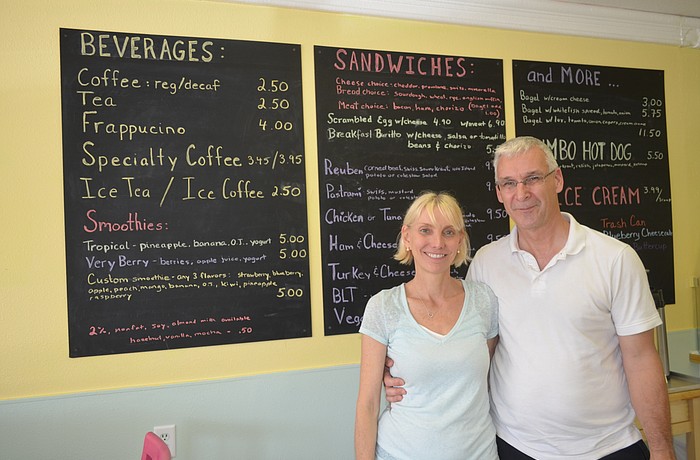 BEVERAGES:
Coffee: reg/decaf 2.50
Tea 2.50
Frappucino 4.00
Specialty Coffee 3.45/3.95
Ice Tea / Ice Coffee 2.50
Smoothies:
Tropical - pineapple, banana, O.J., yogurt 5.00
Very Berry - berries, apple juice, yogurt 5.00
Custom smoothie - any 3 flavors: strawberry, blueberry,
apple, peach, mango, banana, O.J., kiwi, pineapple
raspberry 5.00
2%, nonfat, soy, almond milk available
hazelnut, vanilla, mocha - .50
SANDWICHES:
Cheese choice: cheddar, provolone, swiss, mozzarella
Bread choice: sourdough, wheat, rye, english muffin
Meat choice: bacon, ham, chorizo (Bagel add
Scrambled Egg w/cheese 4.90 w/meat 6.90
Breakfast Burrito w/cheese, salsa or tomatillo
beans & chorizo 5.
Reuben corned beef, swiss, sauerkraut, 1000 island
potato or coleslaw salad 9.
Pastrami swiss, mustard
potato or 9.
Chicken or Tuna 9.50
Ham & Cheese 9.50
Turkey & Cheese
BLT
Veg
and MORE ...
Bagel w/cream cheese 3.00
Bagel w/whitefish spread, tomato, onion 5.75
Bagel w/lox, tomato, onion, capers, cream cheese
11.50
MBO HOT DOG 5.50
ICE CREAM 3.99/
Trash Can
Blueberry Cheesecake